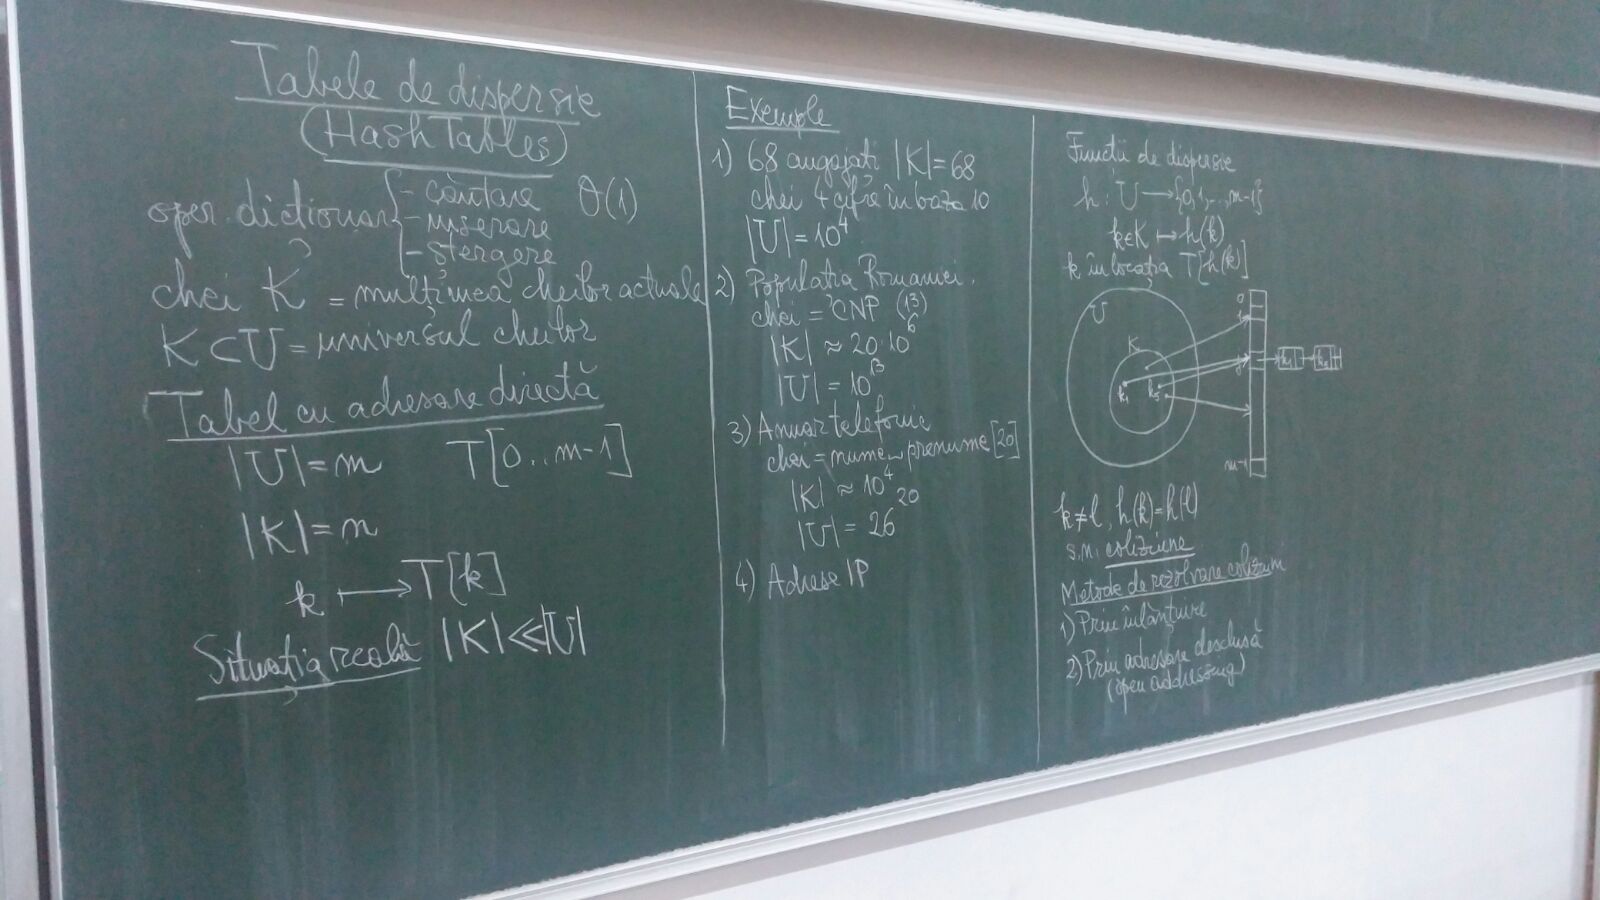 Tabele de dispersie
(Hash Tables)
oper. dicționar { - căutare θ(1)
- inserare
- ștergere
chei K = mulțimea cheilor actuale
K ⊂ U = universul cheilor
Tabel cu adresare directă
|U| = m T[0..m-1]
|K| = n
k ↦ T[k]
Situația reală |K| ≪ |U|
Exemple
1) 68 angajati |K| = 68
chei 4 cifre în baza 10
|U| = 10^4
2) Populatia Romaniei.
chei = CNP (13)
|K| ≈ 20·10^6
|U| = 10^13
3) Anuar telefonic
chei = nume_prenume [20]
|K| ≈ 10^4
|U| = 26^20
4) Adrese IP
Functii de dispersie
h: U → {0,1,..,m-1}
k∈K ↦ h(k)
k în locația T[h(k)]
U
K
k₁
0
1
m-1
k ≠ l, h(k) = h(l)
s.n. coliziune
Metode de rezolvare coliziuni
1) Prin înlănțuire
2) Prin adresare deschisă
(open addressing)